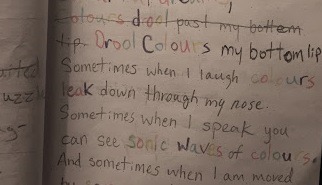 colours drool past my bottom
lip. Drool Colours my bottom lip
Sometimes when I laugh colours
leak down through my nose.
Sometimes when I speak you
can see sonic waves of colours.
And sometimes when I am moved